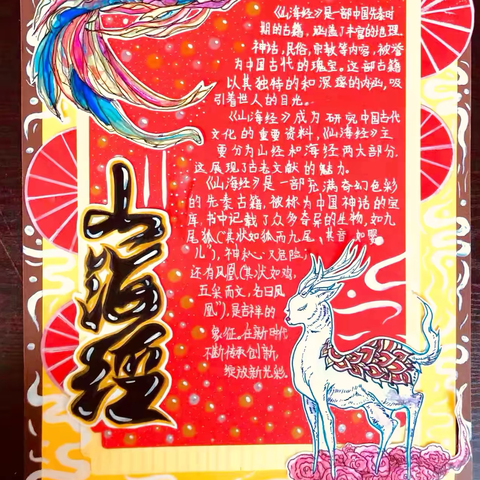 《山海经》是一部中国先秦时
期的古籍，涵盖了丰富的地理、
神话、民俗、宗教等内容，被誉
为中国古代的瑰宝。这部古籍
以其独特的和深邃的内涵，吸
引着世人的目光。
《山海经》成为研究中国古代
文化的重要资料，《山海经》主
要分为山经和海经两大部分，
这展现了古老文献的魅力。
《山海经》是一部充满奇幻色彩
的先秦古籍，被称为中国神话的宝
库。书中记载了众多奇异的生物，如九
尾狐（“其状如狐而九尾，其音如婴
儿”），神秘又危险；
还有凤凰（“其状如鸡，
五采而文，名曰凤
凰”），是吉祥的
象征。在新时代
不断传承创新，
绽放新光彩。
山海经